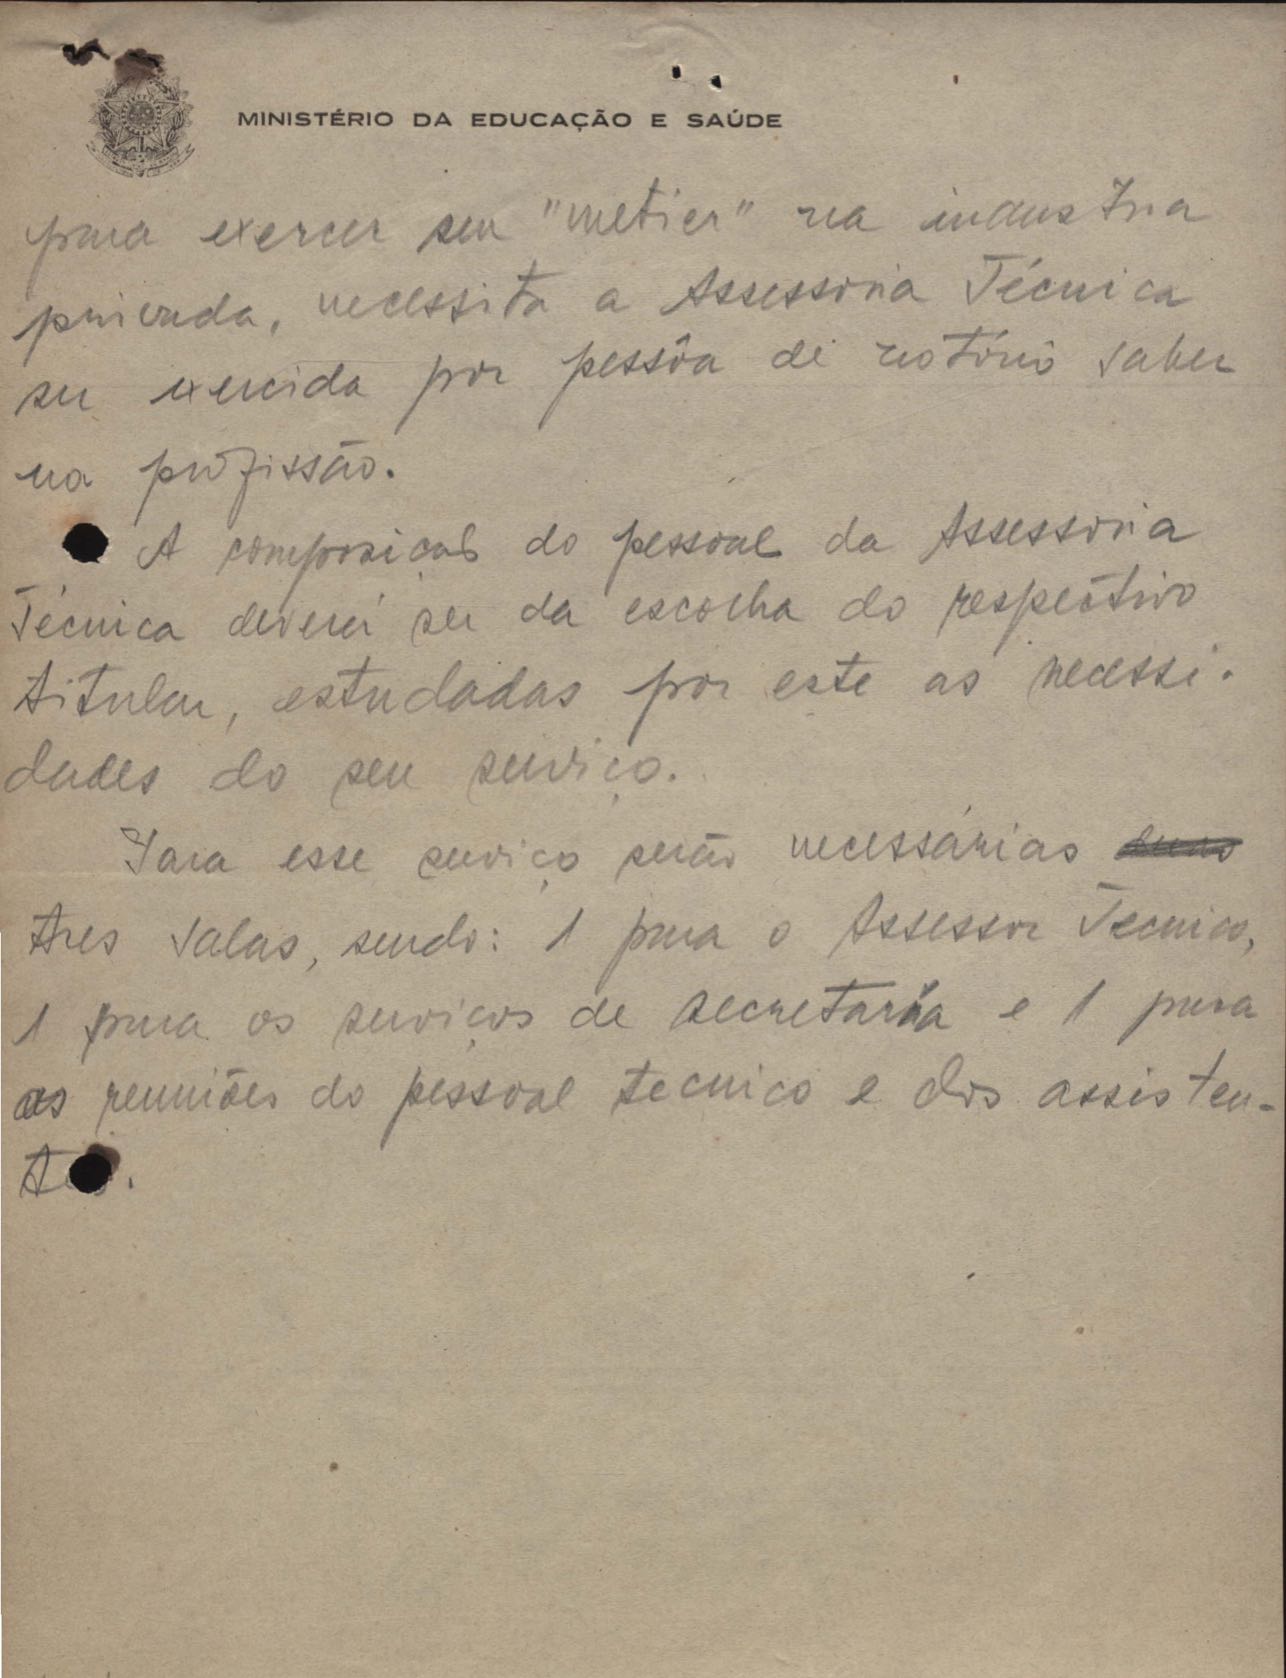 MINISTÉRIO DA EDUCAÇÃO E SAÚDE
para exercer seu "metier" na industria
privada, necessita a Assessoria Técnica
ser exercida por pessôa de notório saber
na profissão.
A composição do pessoal da Assessoria
Técnica deverá ser da escolha do respectivo
titular, estudadas por este as necessi-
dades do seu serviço.
Para esse serviço serão necessárias duas
tres salas, sendo: 1 para o Assessor Tecnico,
1 para os serviços de secretaria e 1 para
as reuniões do pessoal tecnico e dos assisten-
tes.